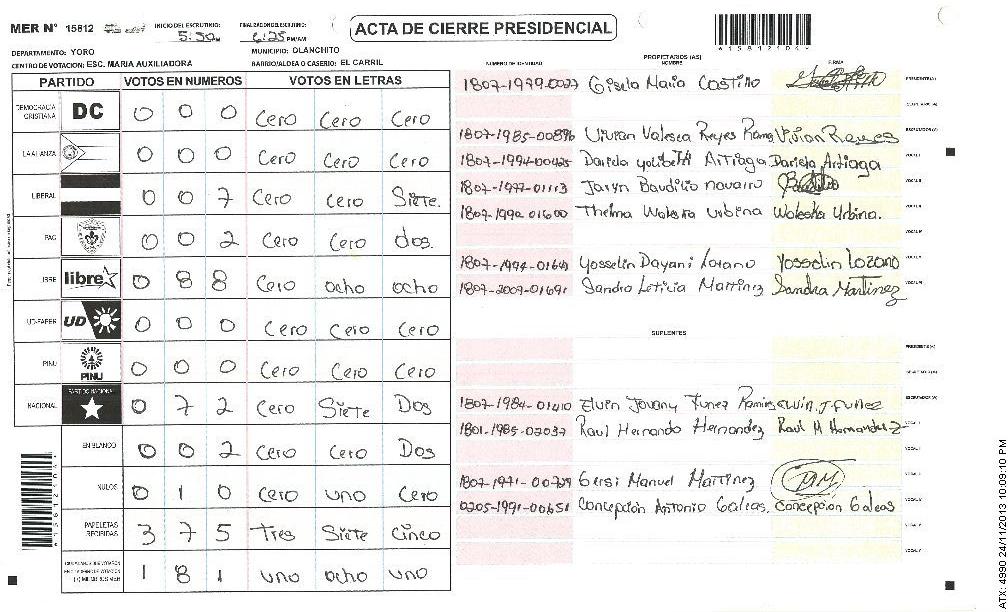 MER Nº 15812
INICIO DEL ESCRUTINIO: 5:30 AM
FINALIZACION ESCRUTINIO: 6:25 PM/AM
ACTA DE CIERRE PRESIDENCIAL
DEPARTAMENTO: YORO
MUNICIPIO: OLANCHITO
CENTRO DE VOTACION: ESC. MARIA AUXILIADORA
BARRIO/ALDEA O CASERIO: EL CARRIL
PARTIDO VOTOS EN NUMEROS VOTOS EN LETRAS
DEMOCRACIA CRISTIANA DC 0 0 0 Cero Cero Cero
LA ALIANZA 0 0 0 Cero Cero Cero
LIBERAL 0 0 7 Cero Cero Siete.
PAC 0 0 2 Cero Cero dos.
LIBRE libre 0 8 8 Cero ocho ocho
UD-FAPER UD 0 0 0 Cero Cero Cero
PINU PINU 0 0 0 Cero Cero Cero
NACIONAL PARTIDO NACIONAL 0 7 2 Cero Siete Dos
EN BLANCO 0 0 2 Cero Cero Dos
NULOS 0 1 0 Cero uno Cero
PAPELETAS RECIBIDAS 3 7 5 Tres Siete Cinco
1 8 1 uno ocho uno
PROPIETARIOS (AS)
NUMERO DE IDENTIDAD NOMBRE FIRMA
1807-1979-0027 Gisela Maria Castillo PRESIDENTE(A)
SECRETARIO(A)
1807-1985-00896 Vivian Valesca Reyes Ramos Vivian Reyes ESCRUTADOR(A)
1807-1994-00425 Dariela yolibeth Artiaga Dariela Artiaga VOCAL I
1807-1977-01113 Jaryn Baudilio navarro VOCAL II
1807-1992-01600 Thelma Waleska urbina Waleska Urbina.
1807-1994-01641 Yosselin Dayani Lozano Yosselin Lozano
1807-2009-01691 Sandra Leticia Martinez Sandra Martinez
SUPLENTES
PRESIDENTE(A)
SECRETARIO(A)
1807-1984-01410 Elvin Jovany Funez Ramires elvin.J.funez ESCRUTADOR(A)
1801-1985-02037 Raul Hernando Hernandez Raul H Hernandez VOCAL I
1807-1971-00729 Gersi Manuel Martinez
0205-1991-00651 Concepción Antonio Galeas. Concepcion Galeas
ATX: 4990 24/11/2013 10:09:10 PM